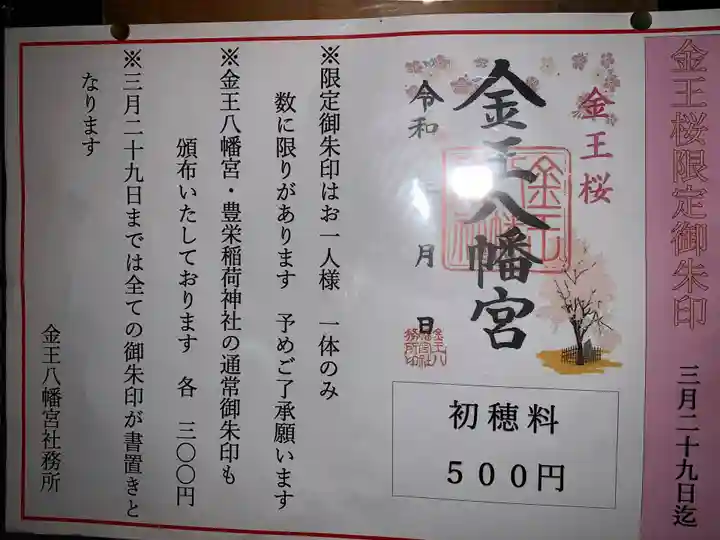 金王桜限定御朱印 三月二十九日迄
金王桜
金王八幡宮
令和 年 月 日
初穂料
500円
※限定御朱印はお一人様 一体のみ
数に限りがあります 予めご了承願います
※金王八幡宮・豊栄稲荷神社の通常御朱印も
頒布いたしております 各 三〇〇円
※三月二十九日までは全ての御朱印が書置きと
なります
金王八幡宮社務所